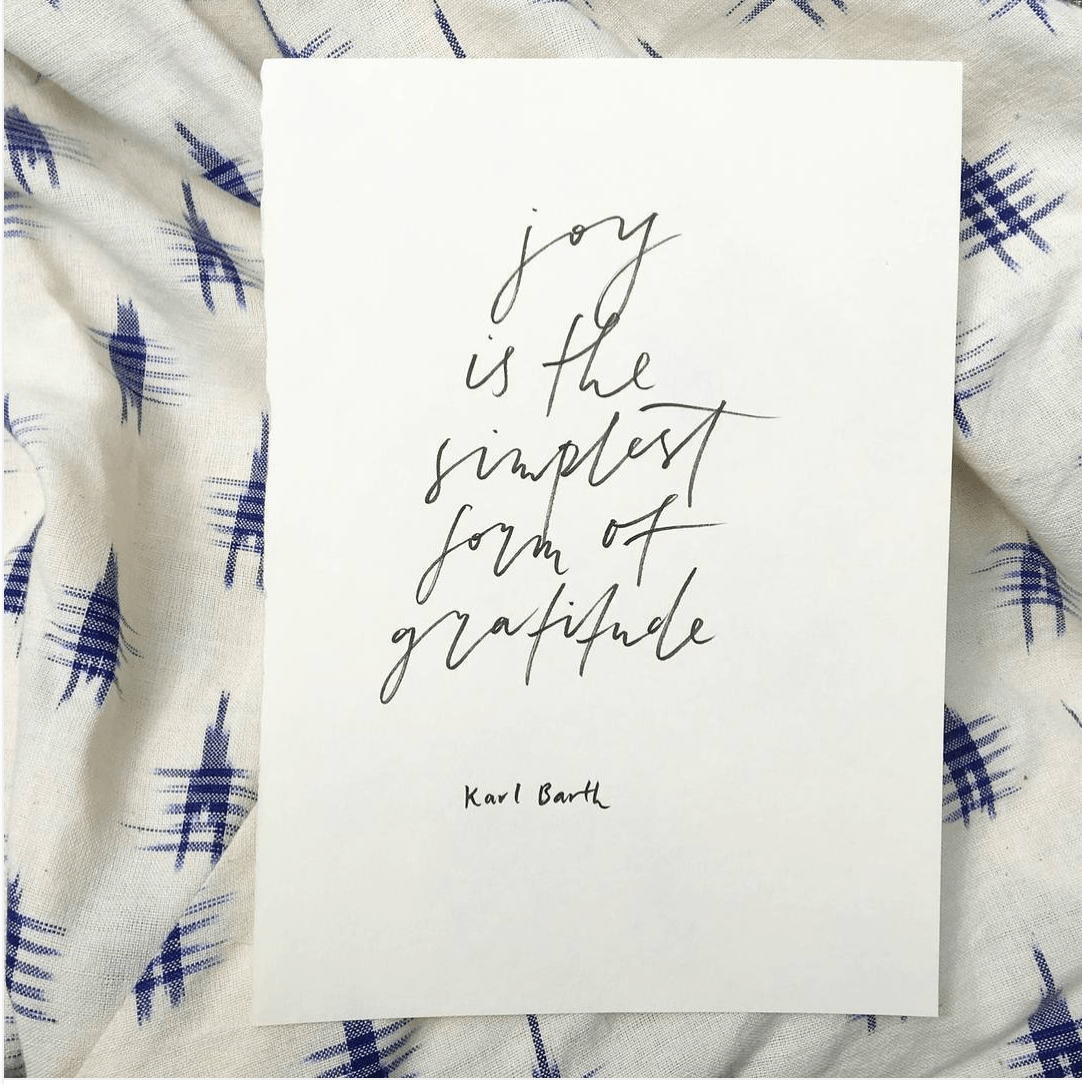 joy
is the
simplest
form of
gratitude
Karl Barth